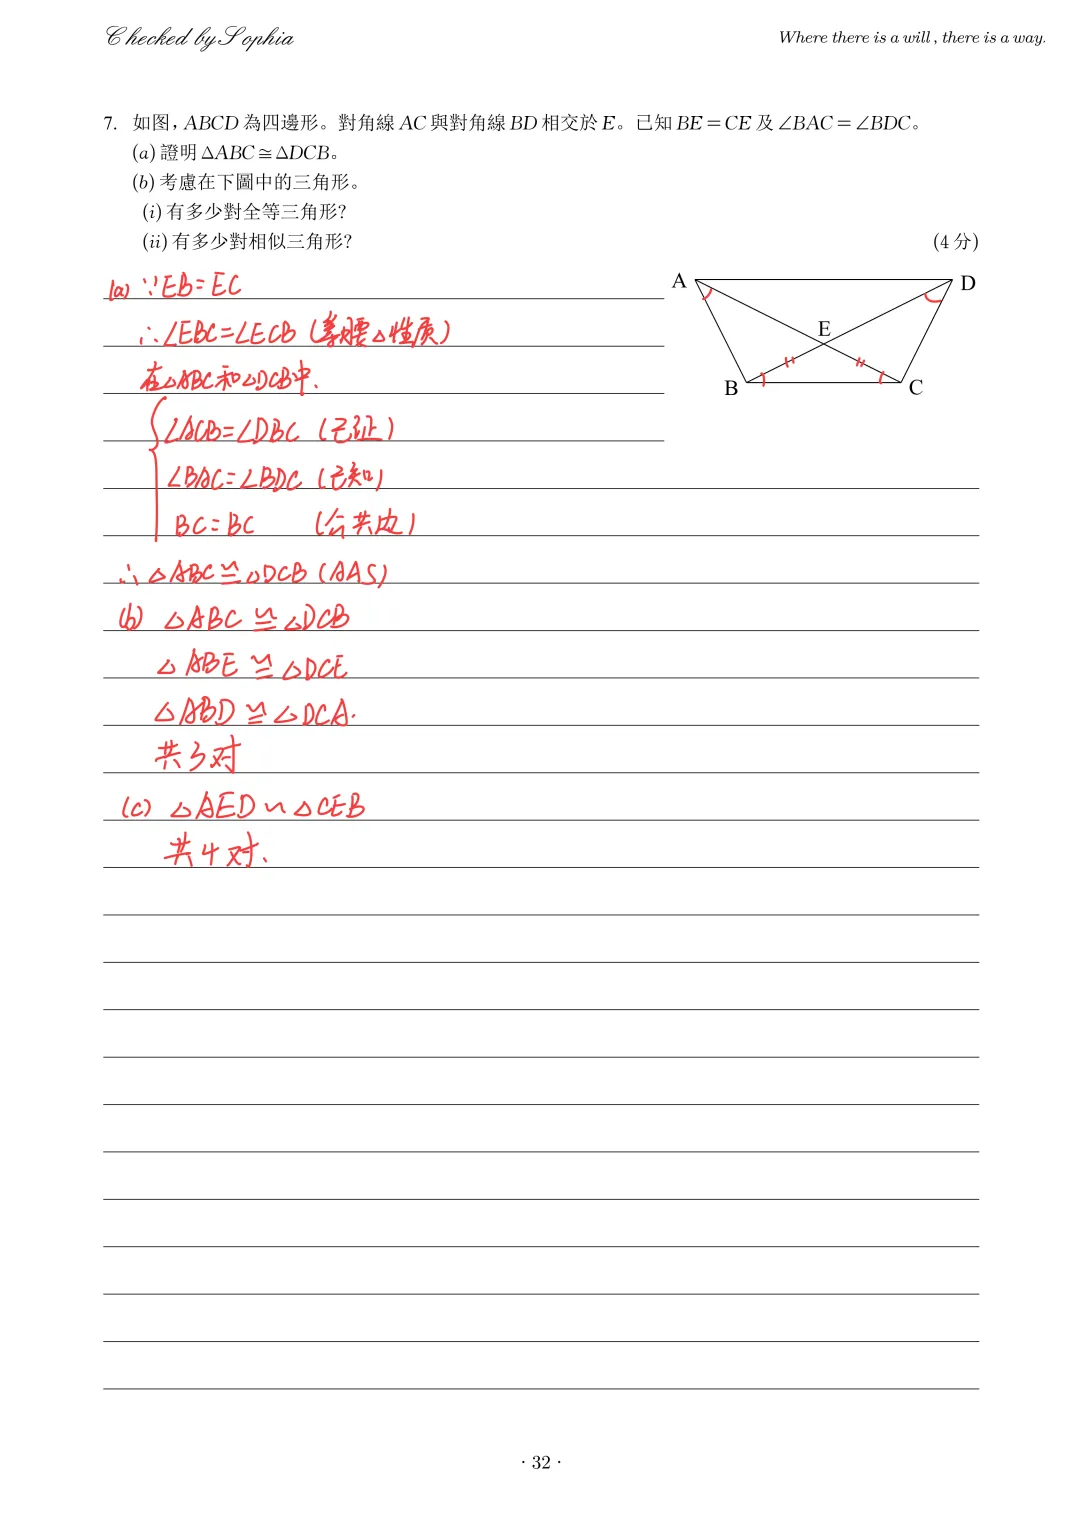 Checked by Sophia
Where there is a will , there is a way.
7. 如图,ABCD 為四邊形。對角線 AC 與對角線 BD 相交於 E。已知 BE = CE 及 ∠BAC = ∠BDC。
(a) 證明 ΔABC ≅ ΔDCB。
(b) 考慮在下圖中的三角形。
(i) 有多少對全等三角形?
(ii) 有多少對相似三角形?
(4 分)
(a) ∵EB=EC
∴∠EBC=∠ECB (等腰△性质)
在△ABC和△DCB中.
∠ACB=∠DBC (已证)
∠BAC=∠BDC (已知)
BC=BC (公共边)
∴△ABC≌△DCB (AAS)
(b) △ABC≌△DCB
△ABE≌△DCE
△ABD≌△DCA.
共3对
(c) △AED∽△CEB
共4对.
A
D
E
B
C
· 32 ·